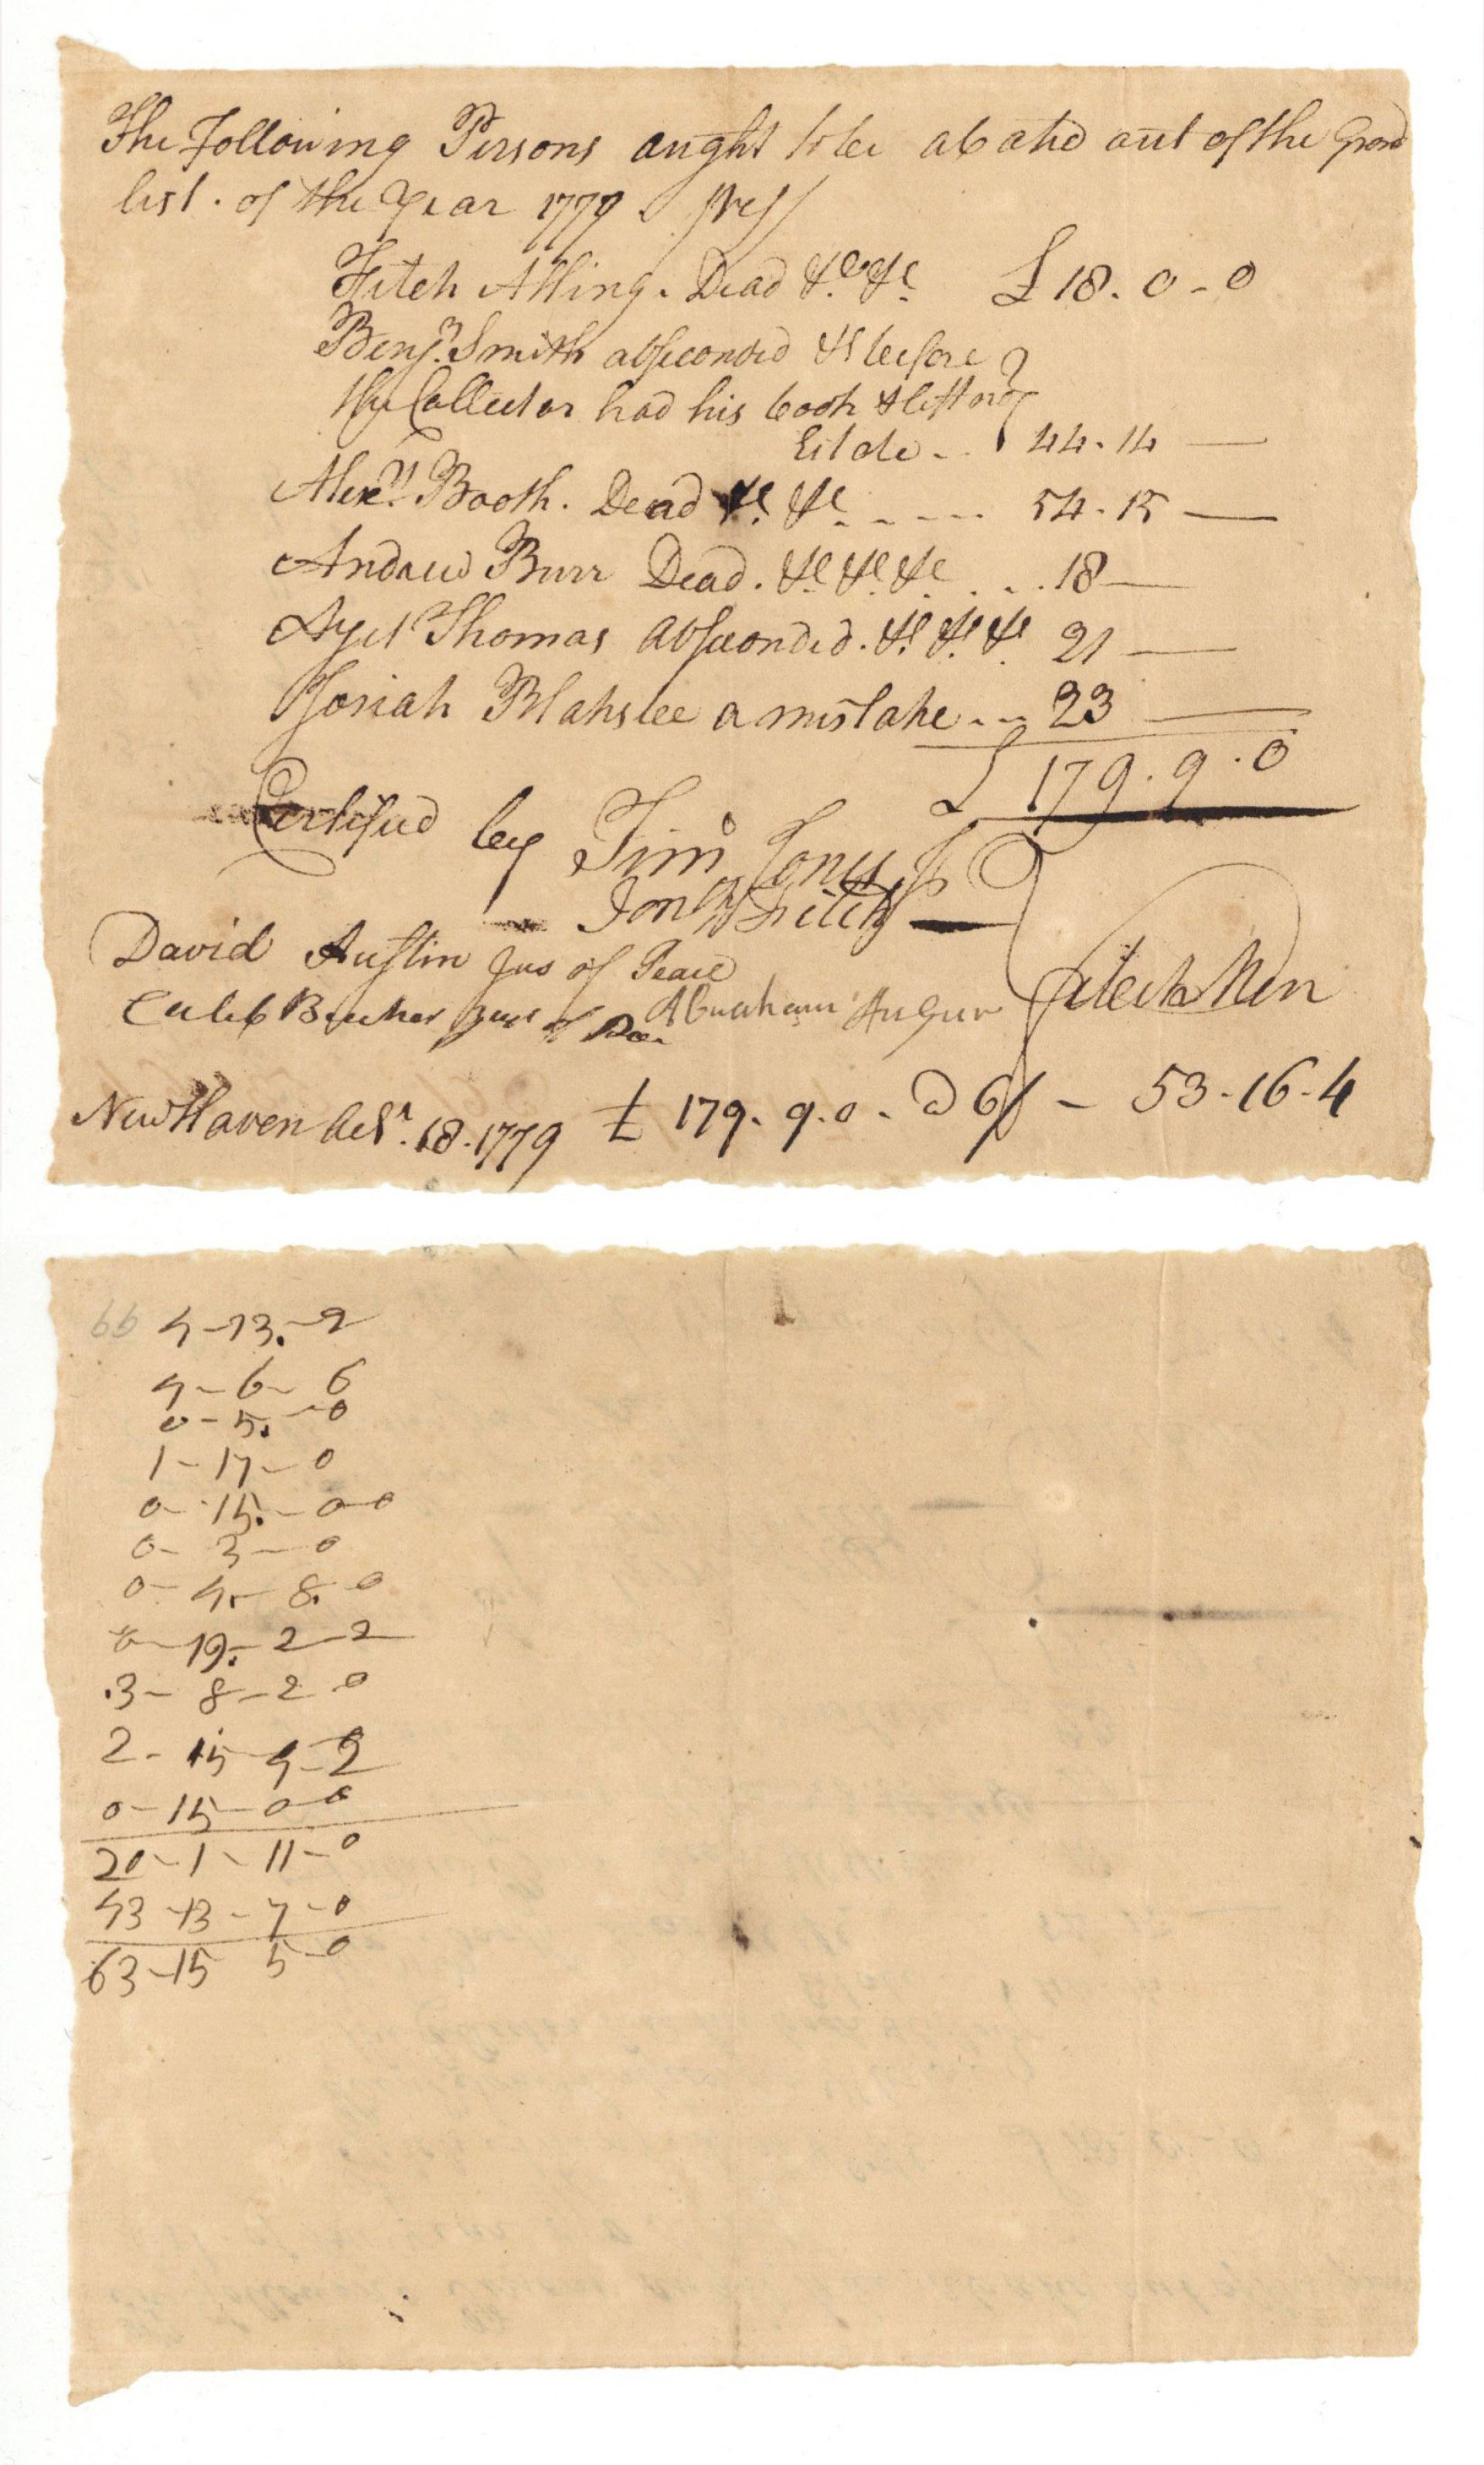 The Following Persons aught to be abated out of the Grand
list. of the Year 1779.
Fitch Alling. Dead &c &c £ 18. 0 - 0
Benjn. Smith absconded &c before
the Collector had his book & left no
Estate - . 44 - 14 —
Alexr. Booth. Dead &c. &c. - - - - 54 - 15 —
Andrew Burr Dead. &c. &c. &c. . . . 18 —
Thomas absconded. &c. &c. &c. 21 —
Josiah Blakslee a mistake - - - 23 —
£ 179. 9. 0
Certifued by Timo Jones Jr
Jonth Fitch
David Austin Jus of Peace
Caleb Beecher Jus of Pea. Abraham Augur Select Men
New Haven Octr. 18. 1779 £ 179. 9. 0 - @ 6/ - 53 - 16 - 4
66 4 - 13. - 2
4 - 6 - 6
0 - 5. - 0
1 - 17 - 0
0 - 15. - 0 - 0
0 - 3 - 0
0 - 4 - 8. 0
0 - 19. - 2 - 2
.3 - 8 - 2 - 0
2 - 15 - 9 - 2
0 - 15 - 0 0
20 - 1 - 11 - 0
43 - 13 - 7 - 0
63 - 15 5 - 0